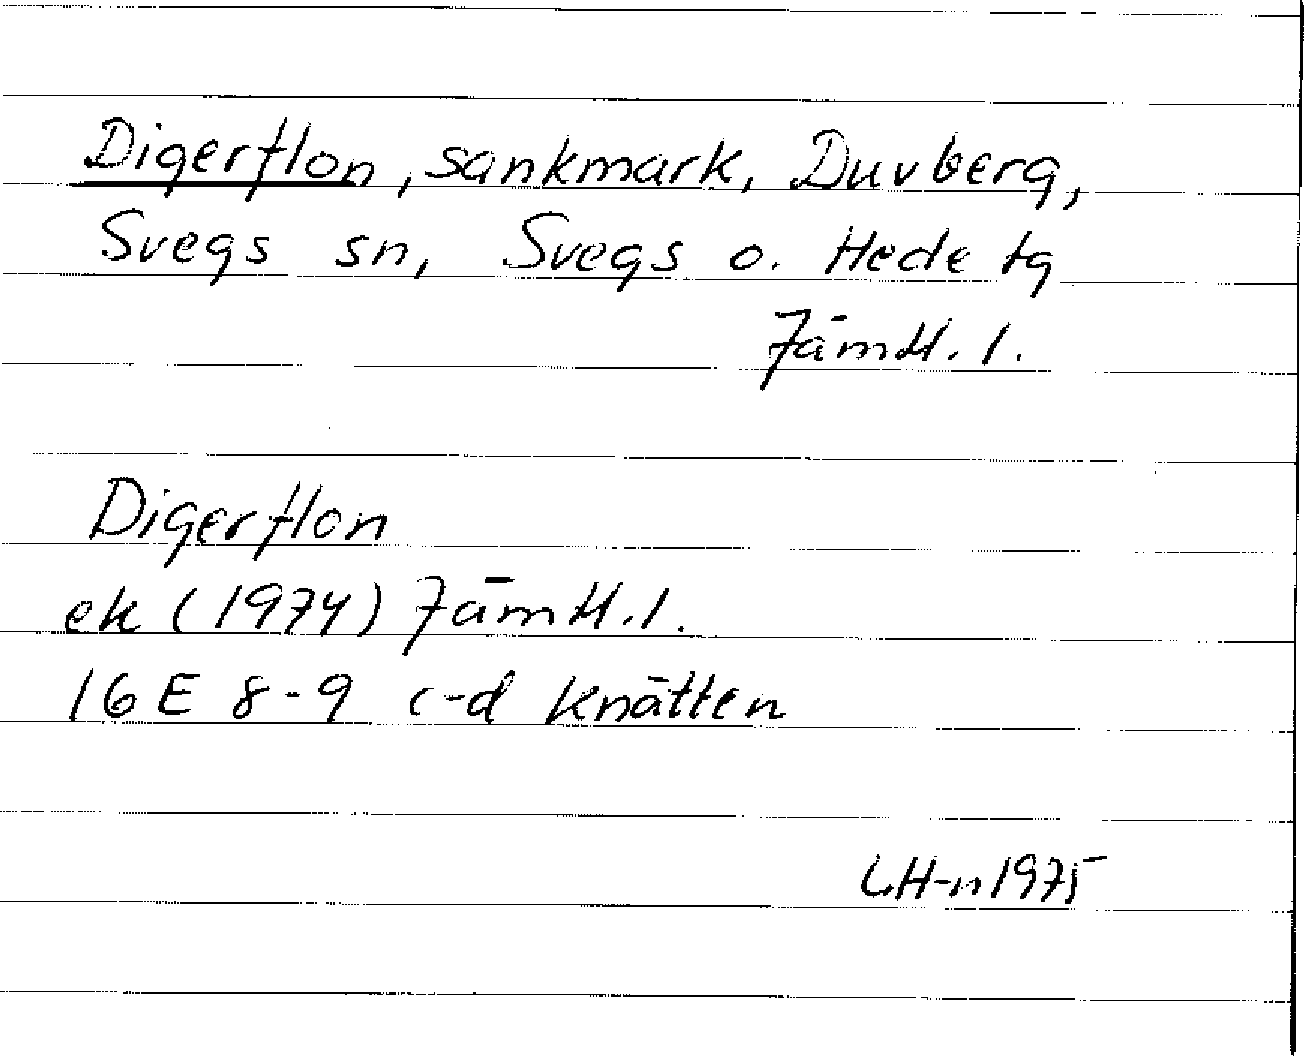 Digerflon, sankmark, Duvberg,
Svegs sn, Svegs o. Hede tg
Jämtl. l.
Digerflon
ek (1974) Jämtl. l.
16 E 8-9 c-d Knätten
LH-n 1975